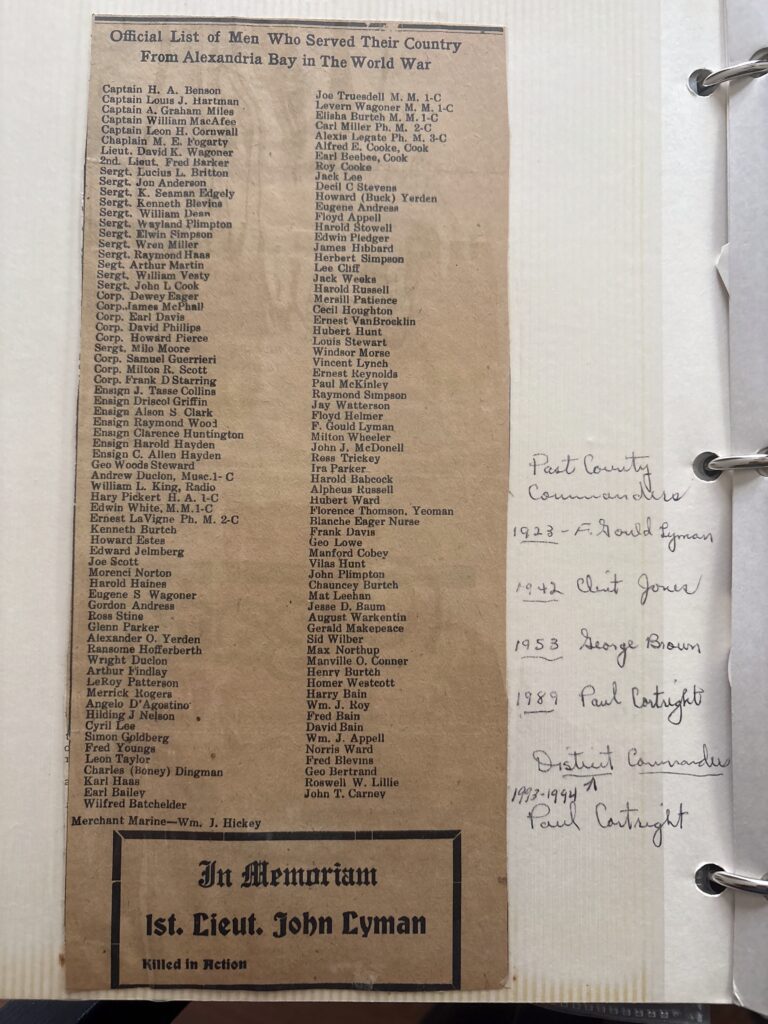 Official List of Men Who Served Their Country
From Alexandria Bay in The World War
Captain H. A. Benson
Captain Louis J. Hartman
Captain A. Graham Miles
Captain William MacAfee
Captain Leon H. Cornwall
Chaplain M. E. Fogarty
Lieut. David K. Wagoner
2nd. Lieut. Fred Barker
Sergt. Lucius L. Britton
Sergt. Jon Anderson
Sergt. K. Seaman Edgely
Sergt. Kenneth Blevins
Sergt. William Dean
Sergt. Wayland Plimpton
Sergt. Elwin Simpson
Sergt. Wren Miller
Sergt. Raymond Haas
Segt. Arthur Martin
Sergt. William Vesty
Sergt. John L Cook
Corp. Dewey Eager
Corp. James McPhail
Corp. Earl Davis
Corp. David Phillips
Corp. Howard Pierce
Sergt. Milo Moore
Corp. Samuel Guerrieri
Corp. Milton R. Scott
Corp. Frank D Starring
Ensign J. Tasse Collins
Ensign Driscol Griffin
Ensign Alson S Clark
Ensign Raymond Wood
Ensign Clarence Huntington
Ensign Harold Hayden
Ensign C. Allen Hayden
Geo Woods Steward
Andrew Duclon, Musc. 1- C
William L. King, Radio
Hary Pickert H. A. 1-C
Edwin White, M.M. 1-C
Ernest LaVigne Ph. M. 2-C
Kenneth Burtch
Howard Estes
Edward Jelmberg
Joe Scott
Morenci Norton
Harold Haines
Eugene S Wagoner
Gordon Andress
Ross Stine
Glenn Parker
Alexander O. Yerden
Ransome Hofferberth
Wright Duclon
Arthur Findlay
LeRoy Patterson
Merrick Rogers
Angelo D'Agostino
Hilding J Nelson
Cyril Lee
Simon Goldberg
Fred Youngs
Leon Taylor
Charles (Boney) Dingman
Karl Haas
Earl Bailey
Wilfred Batchelder
Joe Truesdell M. M. 1-C
Levern Wagoner M. M. 1-C
Elisha Burtch M. M. 1-C
Carl Miller Ph. M. 2-C
Alexis Legate Ph. M. 3-C
Alfred E. Cooke, Cook
Earl Beebee, Cook
Roy Cooke
Jack Lee
Decil C Stevens
Howard (Buck) Yerden
Eugene Andress
Floyd Appell
Harold Stowell
Edwin Pledger
James Hibbard
Herbert Simpson
Lee Cliff
Jack Weeks
Harold Russell
Mersill Patience
Cecil Houghton
Ernest VanBrocklin
Hubert Hunt
Louis Stewart
Windsor Morse
Vincent Lynch
Ernest Reynolds
Paul McKinley
Raymond Simpson
Jay Watterson
Floyd Helmer
F. Gould Lyman
Milton Wheeler
John J. McDonell
Ross Trickey
Ira Parker
Harold Babcock
Alpheus Russell
Hubert Ward
Florence Thomson, Yeoman
Blanche Eager Nurse
Frank Davis
Geo Lowe
Manford Cobey
Vilas Hunt
John Plimpton
Chauncey Burtch
Mat Leehan
Jesse D. Baum
August Warkentin
Gerald Makepeace
Sid Wilber
Max Northup
Manville O. Conner
Henry Burtch
Homer Westcott
Harry Bain
Wm. J. Roy
Fred Bain
David Bain
Wm. J. Appell
Norris Ward
Fred Blevins
Geo Bertrand
Roswell W. Lillie
John T. Carney
Merchant Marine—Wm. J. Hickey
In Memoriam
1st. Lieut. John Lyman
Killed in Action
Past County
Commanders
1923 - F. Gould Lyman
1942 Clint Jones
1953 George Brown
1989 Paul Cortright
District Commander
1993-1994
Paul Cortright